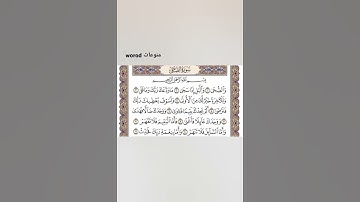 worod منوعات
سورة الضحى
بسم الله الرحمن الرحيم
والضحى ١ والليل إذا سجى ٢ ما ودعك ربك وما قلى ٣
وللآخرة خير لك من الأولى ٤ ولسوف يعطيك ربك
فترضى ٥ ألم يجدك يتيما فآوى ٦ ووجدك ضالا فهدى
٧ ووجدك عائلا فأغنى ٨ فأما اليتيم فلا تقهر ٩
وأما السائل فلا تنهر ١٠ وأما بنعمة ربك فحدث ١١